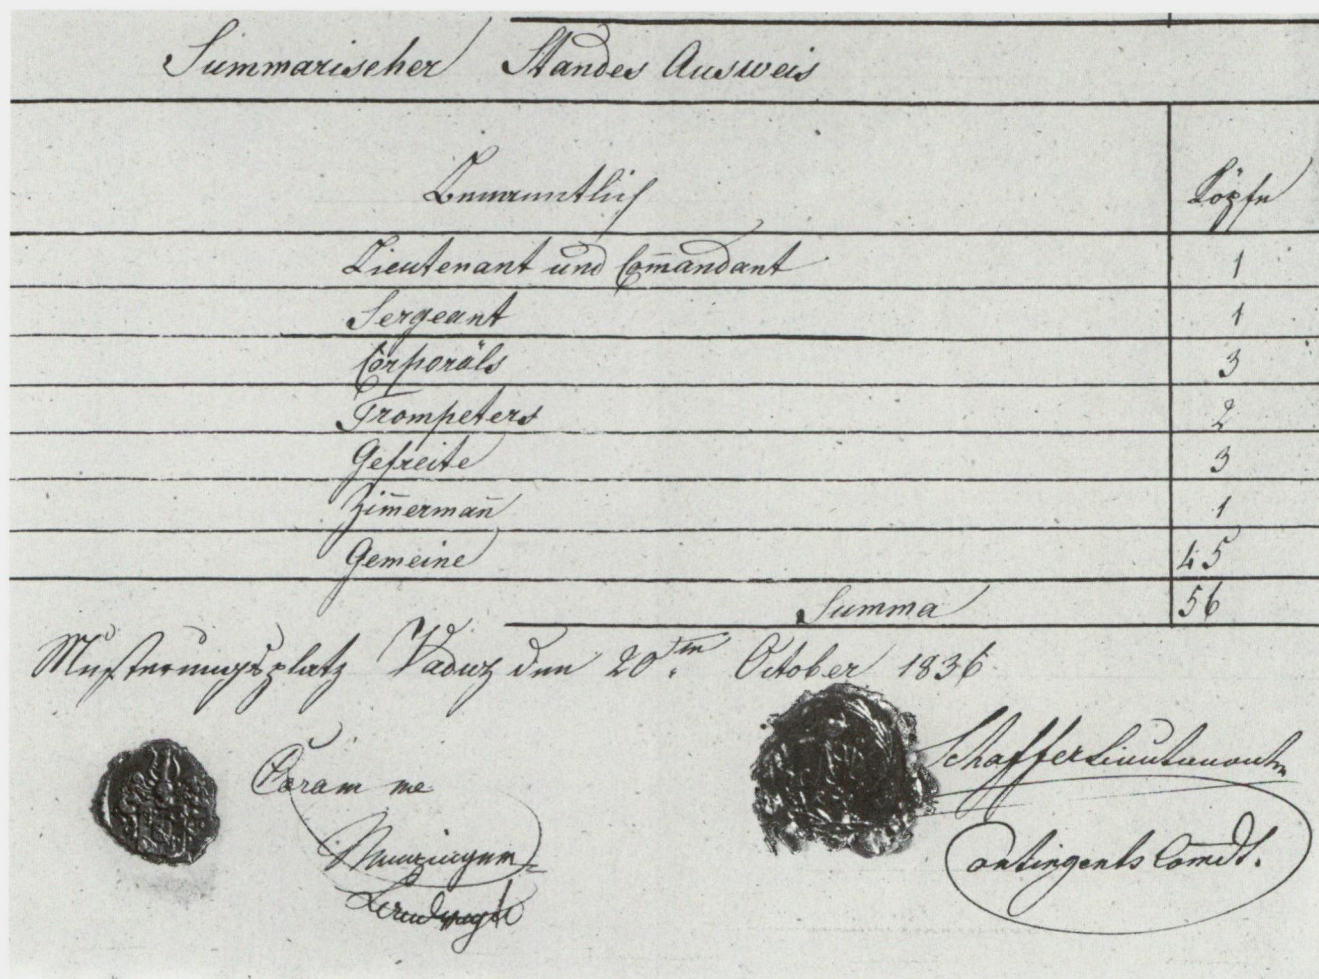 Summarischer Standes Ausweis
Benanntlich Köpfe
Lieutenant und Com̄andant 1
Sergeant 1
Corporäls 3
Trompeters 2
Gefreite 3
Zim̄erman̄ 1
Gemeine 45
Summa 56
Musterungsplatz Vaduz den 20ten October 1836
Coram me Schaffer Lieutenant
Contingents Com̄dt.
Landvogt